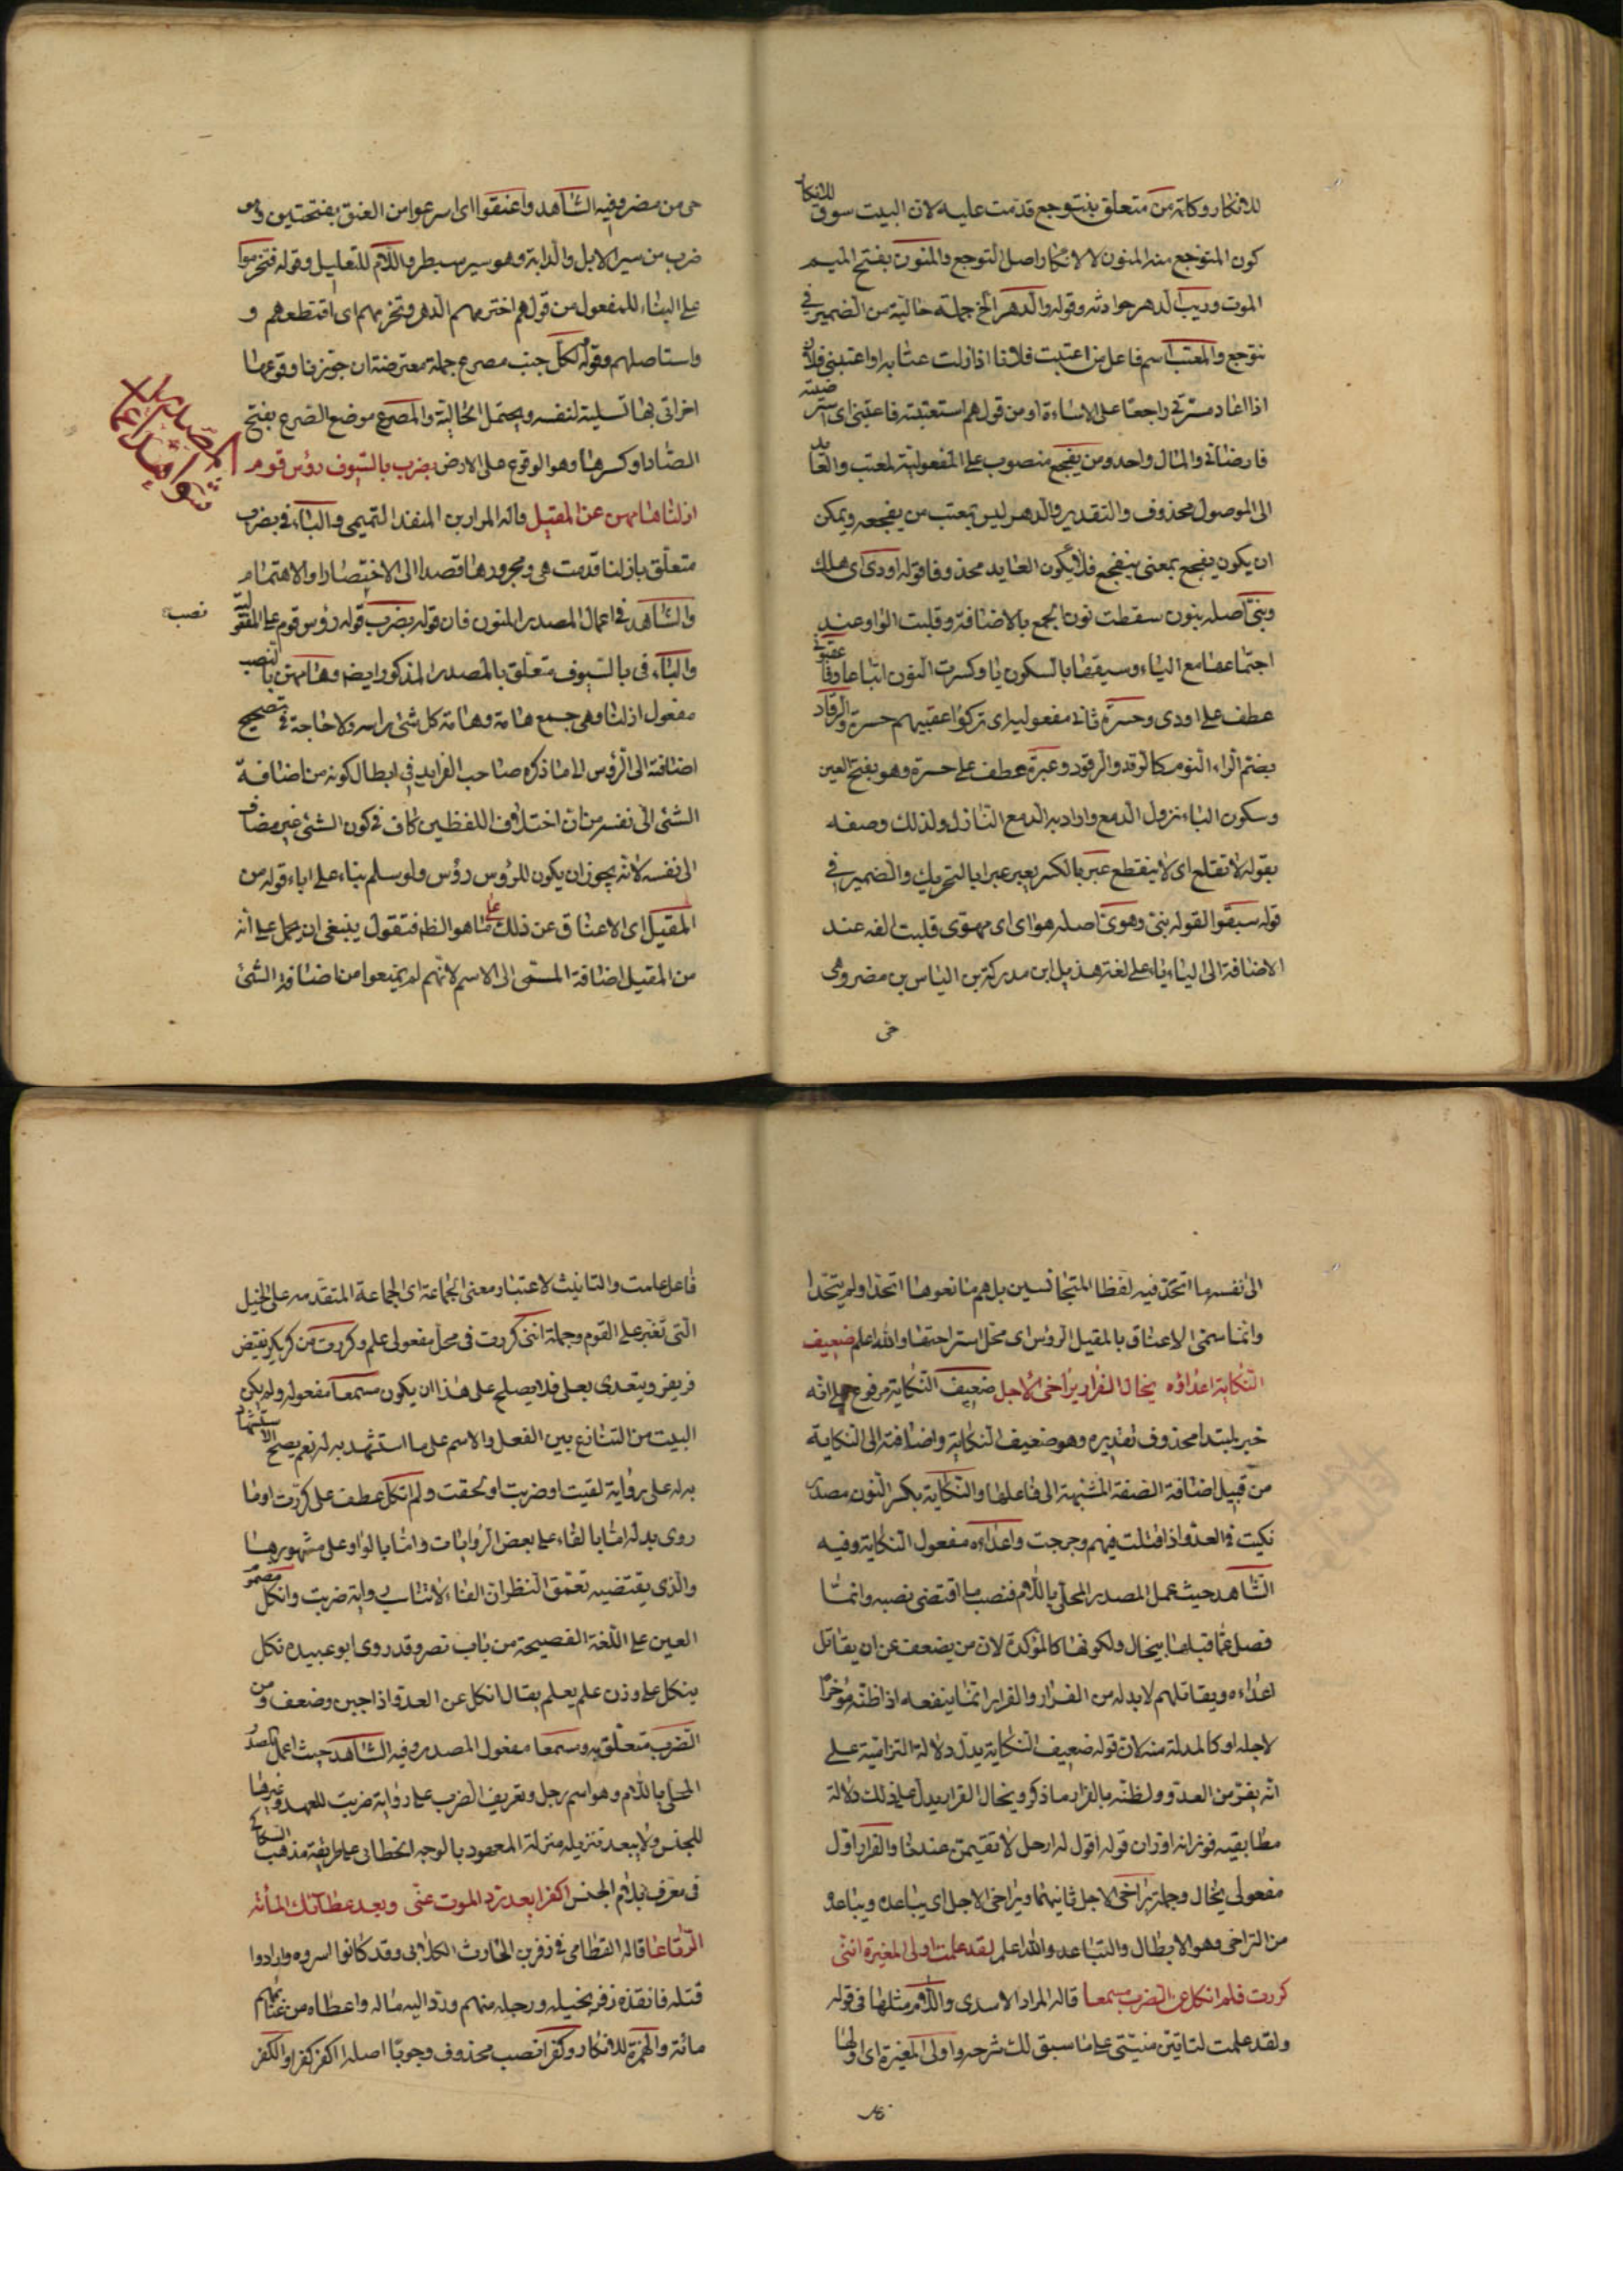 للانكار وكانه من متعلق بتتوجع قدمت عليه لان البيت سوق للانكار
كون المتوجع منه المنون لا لانكار اصل التوجع والمنون بفتح الميم
الموت وريب الدهر حوادثه وقوله والدهر الخ جملة حالية من الضمير في
تتوجع والمعتب اسم فاعل من اعتبت فلانا اذا ازلت عتابه او اعتبنى فلان
اذا اعاد مسرتى راجعا على الاساءة او من قولهم استعتبته فاعتبنى اى استرضيته
فارضانى والمال واحد ومن يفجع منصوب على المفعولية لمعتب والعايد
الى الموصول محذوف والتقدير والدهر ليس بمعتب من يفجعه ويمكن
ان يكون يفجع بمعنى ينفجع فلا يكون العايد محذوفا قوله اودى اى هلك
وبنى اصله بنون سقطت نون الجمع بالاضافة وقلبت الواو عند
اجتماعها مع الياء وسبقها بالسكون يا وكسرت النون اتباعا وفاعقبونى
عطف على اودى وحسرة ثانى مفعوليه اى تركوا عقيبهم حسرة والرقاد
بضم الراء النوم كالرقد والرقود وعبرة عطف على حسرة وهو بفتح العين
وسكون الباء نزول الدمع واراد به الدمع النازل ولذلك وصفه
بقوله لا تقلع اى لا ينقطع عبر بالكسر يعبر عبرا بالتحريك والضمير في
قوله سبقوا لقوله بنى وهوى اصله هواى اى مهوى قلبت الفه عند
الاضافة الى الياء ياء على لغة هذيل ابن مدركة بن الياس بن مضر وهى
حى
حى من مضر وفيه الشاهد واعنقوا اى اسرعوا من العنق بفتحتين وهو
ضرب من سير الابل والدابة وهو سير مسبطر واللام للتعليل وقوله فتخرموا
على البناء للمفعول من قولهم اخترمهم الدهر وتخرمهم اى اقتطعهم و
واستاصلهم وقوله لكل جنب مصرع جملة معترضة ان جوزنا وقوعها
اخرا تى بها تسلية لنفسه ويحتمل الحالية والمصرع موضع الصرع بفتح
الصاد او كسرها وهو الوقوع على الارض بضرب بالسيوف رؤس قوم
ازلنا هامهن عن المقيل قاله المرار بن المنقذ التميمى والباء في بضرب
متعلق بازلنا قدمت هى ومجرورها قصدا الى الاختصار او الاهتمام
والشاهد فى اعمال المصدر المنون فان قوله بضرب قوله رؤس قوم على المفعولية
نصب
والباء فى بالسيوف متعلق بالمصدر المذكور ايضا وهامهن بالنصب
مفعول ازلنا وهى جمع هامة وهامة كل شئ راسه ولا حاجة فى تصحيح
اضافته الى الرؤس الا ما ذكره صاحب الفرايد فى ابطال كونه من اضافة
الشئ الى نفسه من ان اختلاف اللفظين كاف فى كون الشئ غير مضاف
الى نفسه لانه يجوز ان يكون للرؤس رؤس ولو سلم بناء على اباء قوله من
المقيل اى الاعناق عن ذلك على ما هو الظ فنقول ينبغى ان يحمل على انه
من المقيل اضافة المسمى الى الاسم لانهم لم يمنعوا من اضافة الشئ
الى نفسه ما اتخذ فيه لفظا المتجانسين بل هم مانعوها اتخذا ولم يتخذا
وانما سمى الاعناق بالمقيل الرؤس اى محل استراحتها والله اعلم ضعيف
النكاية اعداؤه يخال الفرار يراخى الاجل ضعيف النكاية مرفوع على انه
خبر لمبتدا محذوف تقديره وهو ضعيف النكاية واضافته الى النكاية
من قبيل اضافة الصفة المشبهة الى فاعلها والنكاية بكسر النون مصدر
نكيت فى العدو اذا قتلت فيهم وجرحت واعداءه مفعول النكاية وفيه
الشاهد حيث عمل المصدر المحلى باللام فنصب ما اقتضى نصبه وانما
فصل عما قبلها بيخال ولكونها كالمؤكدة لان من يضعف عن ان يقاتل
اعداءه ويقاتلهم لا بد له من الفرار والفرار انما ينفعه اذا ظنه مؤخرا
لاجله او كالمدلة منه لان قوله ضعيف النكاية يدل دلالة التزامية على
انه يفر من العدو ولظنه بالفرار ما ذكر ويخال الفرار يدل على ذلك دلالة
مطابقية فوزانه اوزان قوله اقول له ارحل لا تقيمن عندنا والفرار اول
مفعولى يخال وجملة يراخى الاجل ثانيهما ويراخى الاجل اى يباعده ويباعد
من التراخى وهو الابطال والتباعد والله اعلم لقد علمت اولى المغيرة اننى
كررت فلم انكل عن الضرب مسمعا قاله المرار الاسدى واللام مثلها فى قوله
ولقد علمت لتاتين منيتى على ما سبق لك شرحه واولى المغيرة اى اولها
فاعل علمت والتانيث لاعتبار معنى الجماعة اى الجماعة المتقدمه على الخيل
التى تغير على القوم وجملة اننى كررت فى محل مفعولى علم وكررت من كر يكر نقيض
فر يفر ويتعدى بعلى فلا يصلح على هذا ان يكون مسمعا مفعوله ولم يكن
البيت من التنازع بين الفعل والاسم على ما استشهد به له نعم يصح الاستشهاد
به له على رواية لقيت او ضربت او لحقت ولم انكل عطف على كررت او ما
روى بدله اما بالفاء على بعض الروايات واما بالواو على مشهورها
والذى يقتضيه تعمق النظر ان الفاء لانتاسب رواية ضربت وانكل مضموم
العين على اللغة الفصيحة من باب نصر وقد روى ابو عبيده نكل
ينكل على وزن علم يعلم يقال انكل عن العدو اذا جبن وضعف وعن
الضرب متعلق به ومسمعا مفعول المصدر وفيه الشاهد حيث اعمل المصدر
المحلى باللام وهو اسم رجل وتعريف الضرب على رواية ضربت للعهد وغيرها
للجنس ولا يبعد تنزيله منزلة المعهود بالوجه الخطابى على طريقة مذهب السكاكى
فى معرف بلام الجنس اكفرا بعد رد الموت عنى وبعد عطائك المائة
الرتاعا قاله القطامى فى زفر بن الحارث الكلابى وقد كانوا اسروه وارادوا
قتله فانقذه زفر بخيله ورجله منهم ورد اليه ماله واعطاه من غنائمهم
مائة والهمزة للانكار وكفرا نصب محذوف وجوبا اصله اكفر كفرا والكفر